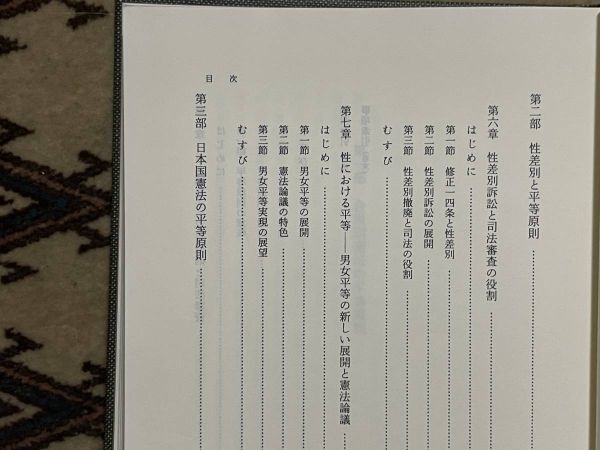 目 次
第二部 性差別と平等原則
第六章 性差別訴訟と司法審査の役割
はじめに
第一節 修正一四条と性差別
第二節 性差別訴訟の展開
第三節 性差別撤廃と司法の役割
むすび
第七章 性における平等――男女平等の新しい展開と憲法論議
はじめに
第一節 男女平等の展開
第二節 憲法論議の特色
第三節 男女平等実現の展望
むすび
第三部 日本国憲法の平等原則